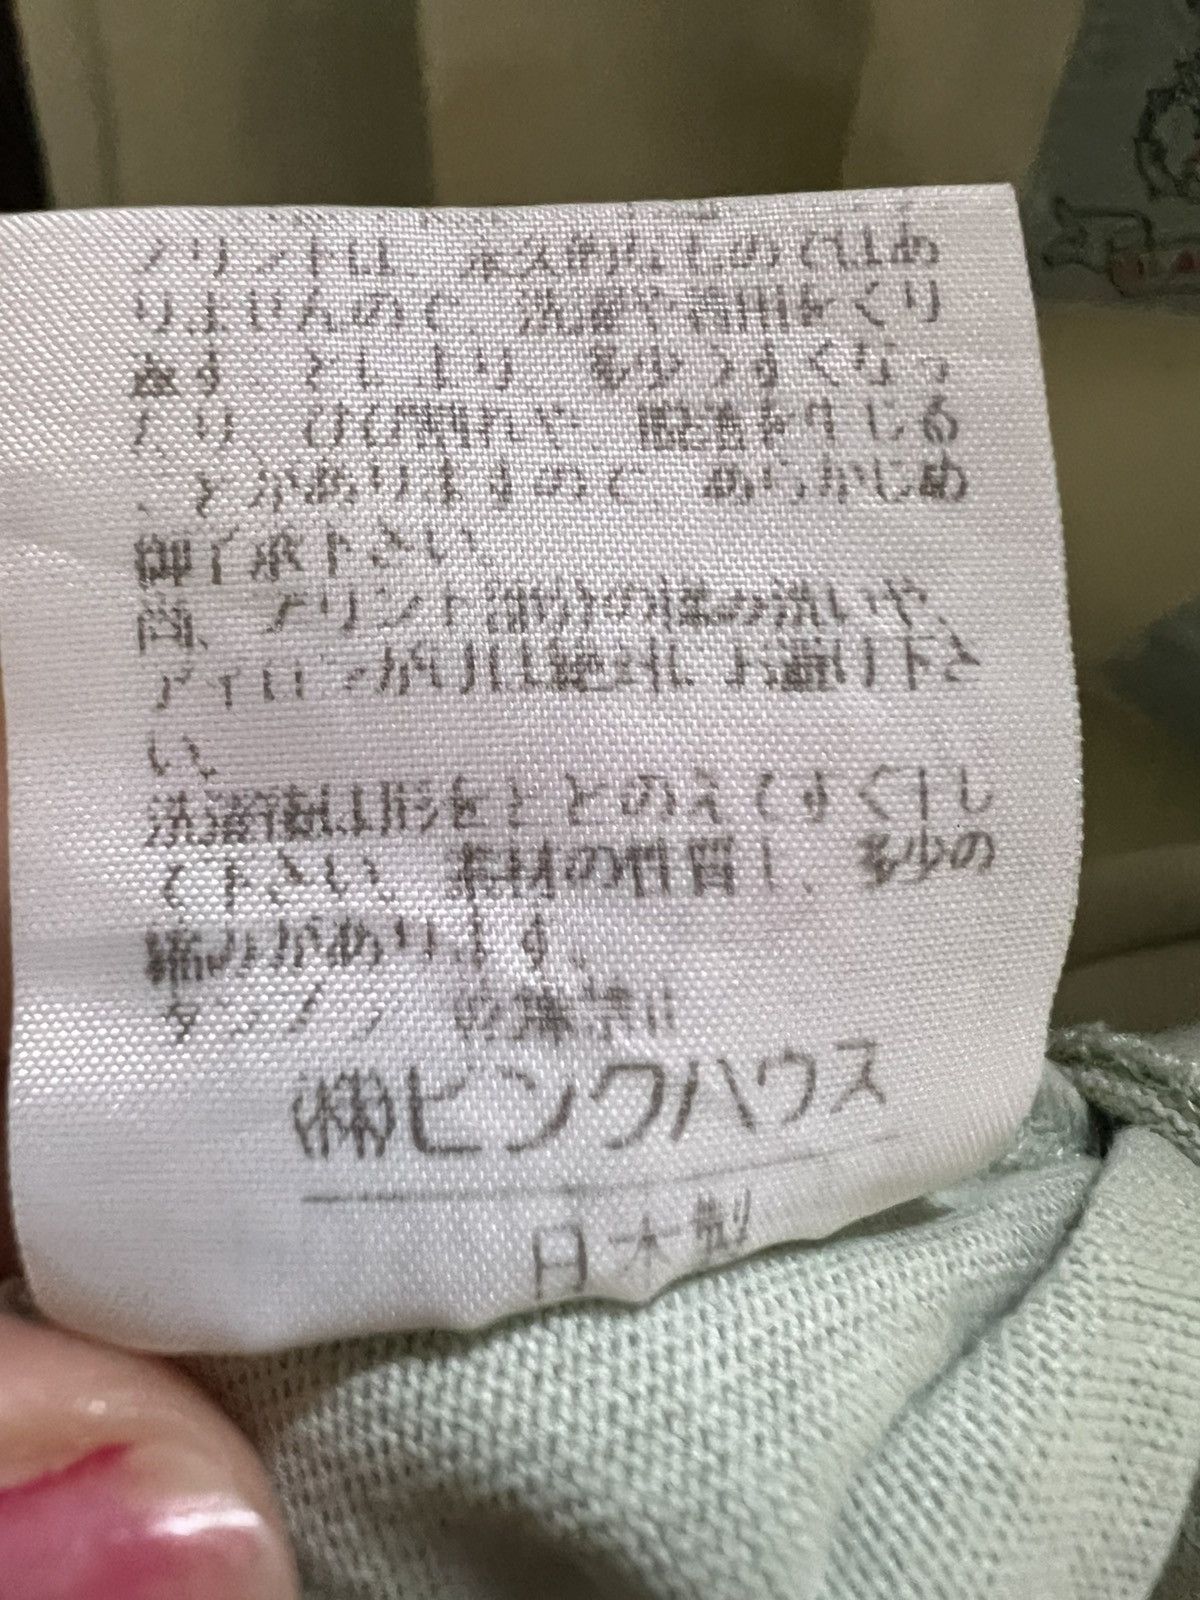 プリントは、永久的なものではあ
りませんので、洗濯や着用をくり
返す ことにより 多少うすくなっ
たり ひび割れや、脱落を生じる
ことがありますので あらかじめ
御了承下さい。
尚、プリント部分の揉み洗いや、
アイロンがけは絶対に お避け下さ
い。
洗濯後は形をととのえてすぐ干し
て下さい。素材の性質上、多少の
縮みがあります。
タンブラー乾燥禁止
㈱ピンクハウス
日本製